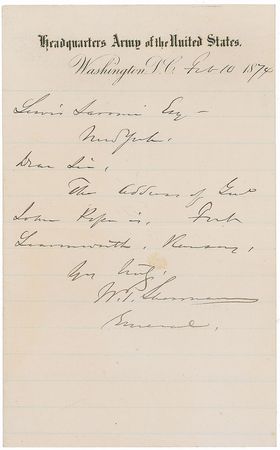 Headquarters Army of the United States.
Washington, D.C. Feb 10 1874
Esq –
New York.
Dear Sir,
The Address of Genl
John Pope is, Fort
Leavenworth, Kansas,
Yrs truly,
W. T. Sherman
General.